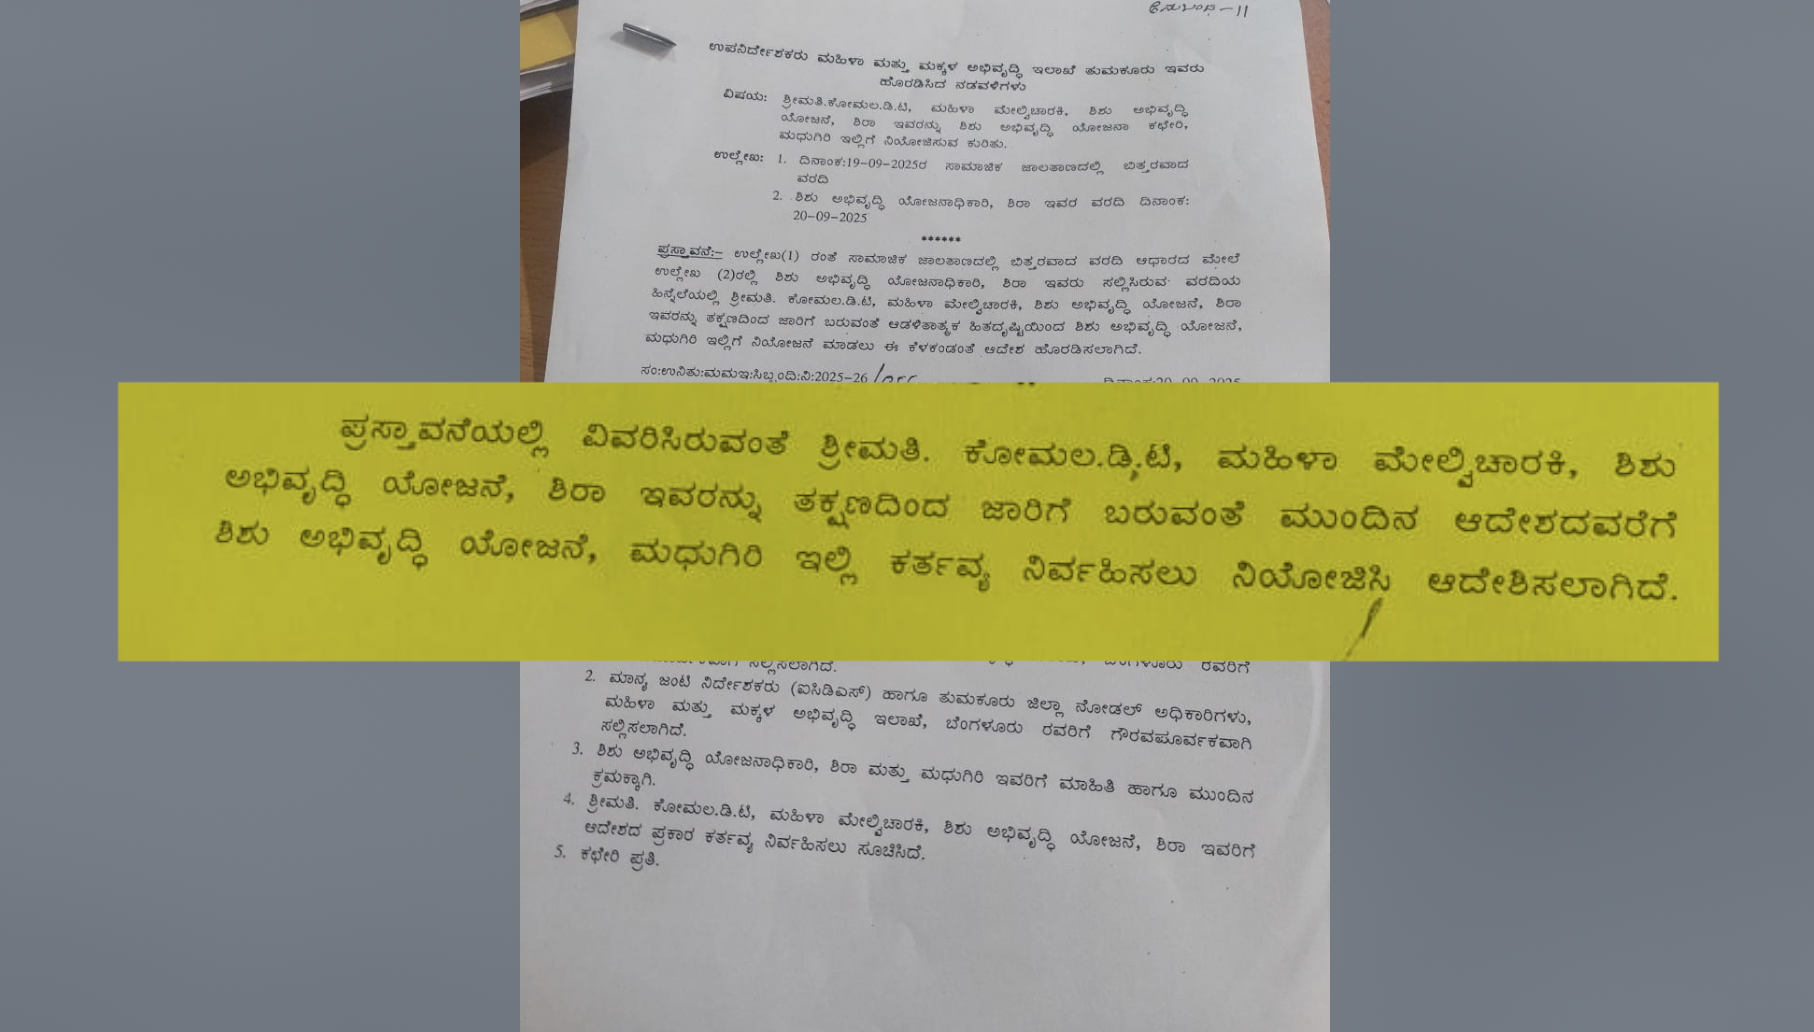 ಅನುಬಂಧ-11
ಉಪನಿರ್ದೇಶಕರು ಮಹಿಳಾ ಮತ್ತು ಮಕ್ಕಳ ಅಭಿವೃದ್ಧಿ ಇಲಾಖೆ ತುಮಕೂರು ಇವರು
ಹೊರಡಿಸಿದ ನಡವಳಿಗಳು
ವಿಷಯ: ಶ್ರೀಮತಿ.ಕೋಮಲ.ಡಿ.ಟಿ, ಮಹಿಳಾ ಮೇಲ್ವಿಚಾರಕಿ, ಶಿಶು ಅಭಿವೃದ್ಧಿ
ಯೋಜನೆ, ಶಿರಾ ಇವರನ್ನು ಶಿಶು ಅಭಿವೃದ್ಧಿ ಯೋಜನಾ ಕಛೇರಿ,
ಮಧುಗಿರಿ ಇಲ್ಲಿಗೆ ನಿಯೋಜಿಸುವ ಕುರಿತು.
ಉಲ್ಲೇಖ: 1. ದಿನಾಂಕ:19-09-2025ರ ಸಾಮಾಜಿಕ ಜಾಲತಾಣದಲ್ಲಿ ಬಿತ್ತರವಾದ
ವರದಿ
2. ಶಿಶು ಅಭಿವೃದ್ಧಿ ಯೋಜನಾಧಿಕಾರಿ, ಶಿರಾ ಇವರ ವರದಿ ದಿನಾಂಕ:
20-09-2025
******
ಪ್ರಸ್ತಾವನೆ:- ಉಲ್ಲೇಖ(1) ರಂತೆ ಸಾಮಾಜಿಕ ಜಾಲತಾಣದಲ್ಲಿ ಬಿತ್ತರವಾದ ವರದಿ ಆಧಾರದ ಮೇಲೆ
ಉಲ್ಲೇಖ (2)ರಲ್ಲಿ ಶಿಶು ಅಭಿವೃದ್ಧಿ ಯೋಜನಾಧಿಕಾರಿ, ಶಿರಾ ಇವರು ಸಲ್ಲಿಸಿರುವ ವರದಿಯ
ಹಿನ್ನೆಲೆಯಲ್ಲಿ ಶ್ರೀಮತಿ. ಕೋಮಲ.ಡಿ.ಟಿ, ಮಹಿಳಾ ಮೇಲ್ವಿಚಾರಕಿ, ಶಿಶು ಅಭಿವೃದ್ಧಿ ಯೋಜನೆ, ಶಿರಾ
ಇವರನ್ನು ತಕ್ಷಣದಿಂದ ಜಾರಿಗೆ ಬರುವಂತೆ ಆಡಳಿತಾತ್ಮಕ ಹಿತದೃಷ್ಟಿಯಿಂದ ಶಿಶು ಅಭಿವೃದ್ಧಿ ಯೋಜನೆ,
ಮಧುಗಿರಿ ಇಲ್ಲಿಗೆ ನಿಯೋಜನೆ ಮಾಡಲು ಈ ಕೆಳಕಂಡಂತೆ ಆದೇಶ ಹೊರಡಿಸಲಾಗಿದೆ.
ಸಂ:ಉನಿತು:ಮಮಇ:ಸಿಬ್ಬಂದಿ:ನಿ:2025-26/ ದಿನಾಂಕ:20-09-2025
ಪ್ರಸ್ತಾವನೆಯಲ್ಲಿ ವಿವರಿಸಿರುವಂತೆ ಶ್ರೀಮತಿ. ಕೋಮಲ.ಡಿ.ಟಿ, ಮಹಿಳಾ ಮೇಲ್ವಿಚಾರಕಿ, ಶಿಶು
ಅಭಿವೃದ್ಧಿ ಯೋಜನೆ, ಶಿರಾ ಇವರನ್ನು ತಕ್ಷಣದಿಂದ ಜಾರಿಗೆ ಬರುವಂತೆ ಮುಂದಿನ ಆದೇಶದವರೆಗೆ
ಶಿಶು ಅಭಿವೃದ್ಧಿ ಯೋಜನೆ, ಮಧುಗಿರಿ ಇಲ್ಲಿ ಕರ್ತವ್ಯ ನಿರ್ವಹಿಸಲು ನಿಯೋಜಿಸಿ ಆದೇಶಿಸಲಾಗಿದೆ.
ಸಲ್ಲಿಸಲಾಗಿದೆ. ಬೆಂಗಳೂರು ರವರಿಗೆ
2. ಮಾನ್ಯ ಜಂಟಿ ನಿರ್ದೇಶಕರು (ಐಸಿಡಿಎಸ್) ಹಾಗೂ ತುಮಕೂರು ಜಿಲ್ಲಾ ನೋಡಲ್ ಅಧಿಕಾರಿಗಳು,
ಮಹಿಳಾ ಮತ್ತು ಮಕ್ಕಳ ಅಭಿವೃದ್ಧಿ ಇಲಾಖೆ, ಬೆಂಗಳೂರು ರವರಿಗೆ ಗೌರವಪೂರ್ವಕವಾಗಿ
ಸಲ್ಲಿಸಲಾಗಿದೆ.
3. ಶಿಶು ಅಭಿವೃದ್ಧಿ ಯೋಜನಾಧಿಕಾರಿ, ಶಿರಾ ಮತ್ತು ಮಧುಗಿರಿ ಇವರಿಗೆ ಮಾಹಿತಿ ಹಾಗೂ ಮುಂದಿನ
ಕ್ರಮಕ್ಕಾಗಿ.
4. ಶ್ರೀಮತಿ. ಕೋಮಲ.ಡಿ.ಟಿ, ಮಹಿಳಾ ಮೇಲ್ವಿಚಾರಕಿ, ಶಿಶು ಅಭಿವೃದ್ಧಿ ಯೋಜನೆ, ಶಿರಾ ಇವರಿಗೆ
ಆದೇಶದ ಪ್ರಕಾರ ಕರ್ತವ್ಯ ನಿರ್ವಹಿಸಲು ಸೂಚಿಸಿದೆ.
5. ಕಛೇರಿ ಪ್ರತಿ.